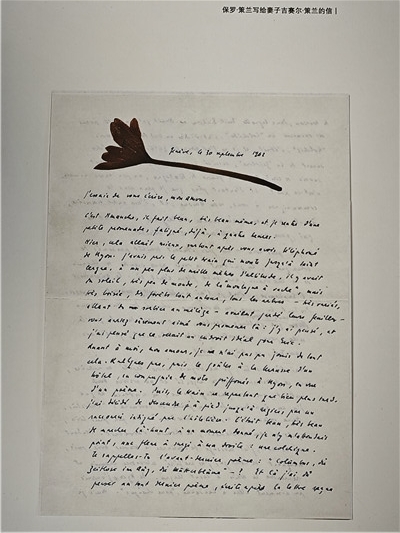 保罗·策兰写给妻子吉赛尔·策兰的信|
Genève, le 30 septembre 1962
J'envie de vous écrire, mon amour.
C'est dimanche, il fait beau, très beau même, et je rentre d'une
petite promenade, fatigué, déjà, à quatre heures.
Hier, cela allait mieux, surtout après vous avoir téléphoné
de Nyon. J'avais pris le petit train qui monte jusqu'à Saint
Cergue, à un peu plus de mille mètres d'altitude, il y avait
du soleil, très peu de monde, de la montagne à vache", mais
très boisée, des forêts tout autour, tous les arbres –
allant du au mélèze – avaient gardé leurs feuilles –
vous auriez sûrement aimé vous promener là: j'y ai pensé, et
j'ai pensé que ce serait un endroit idéal pour Eric.
Quant à moi, mon amour, je n'ai pas pu jouir de tout
cela. Quelques pas, puis le goûter à la terrasse d'un
hôtel, en compagnie de mots griffonnés à Nyon, en vue
d'un poème. Puis, le train ne repartant que bien plus tard,
j'ai décidé de descendre à pied jusqu'à, par un
raccourci indiqué par l'hôtelière. C'était beau, très beau
de marcher là-haut, à un moment donné, je m'y attendais
point, une fleur a surgi à ma droite: une colchique.
Te rappelles-tu l'avant-dernier poème: " Columbus, die
Zeitlose im Aug, die Mutterblume" – ? Et là j'ai dû
penser au tout dernier poème, écrit après la lettre reçue